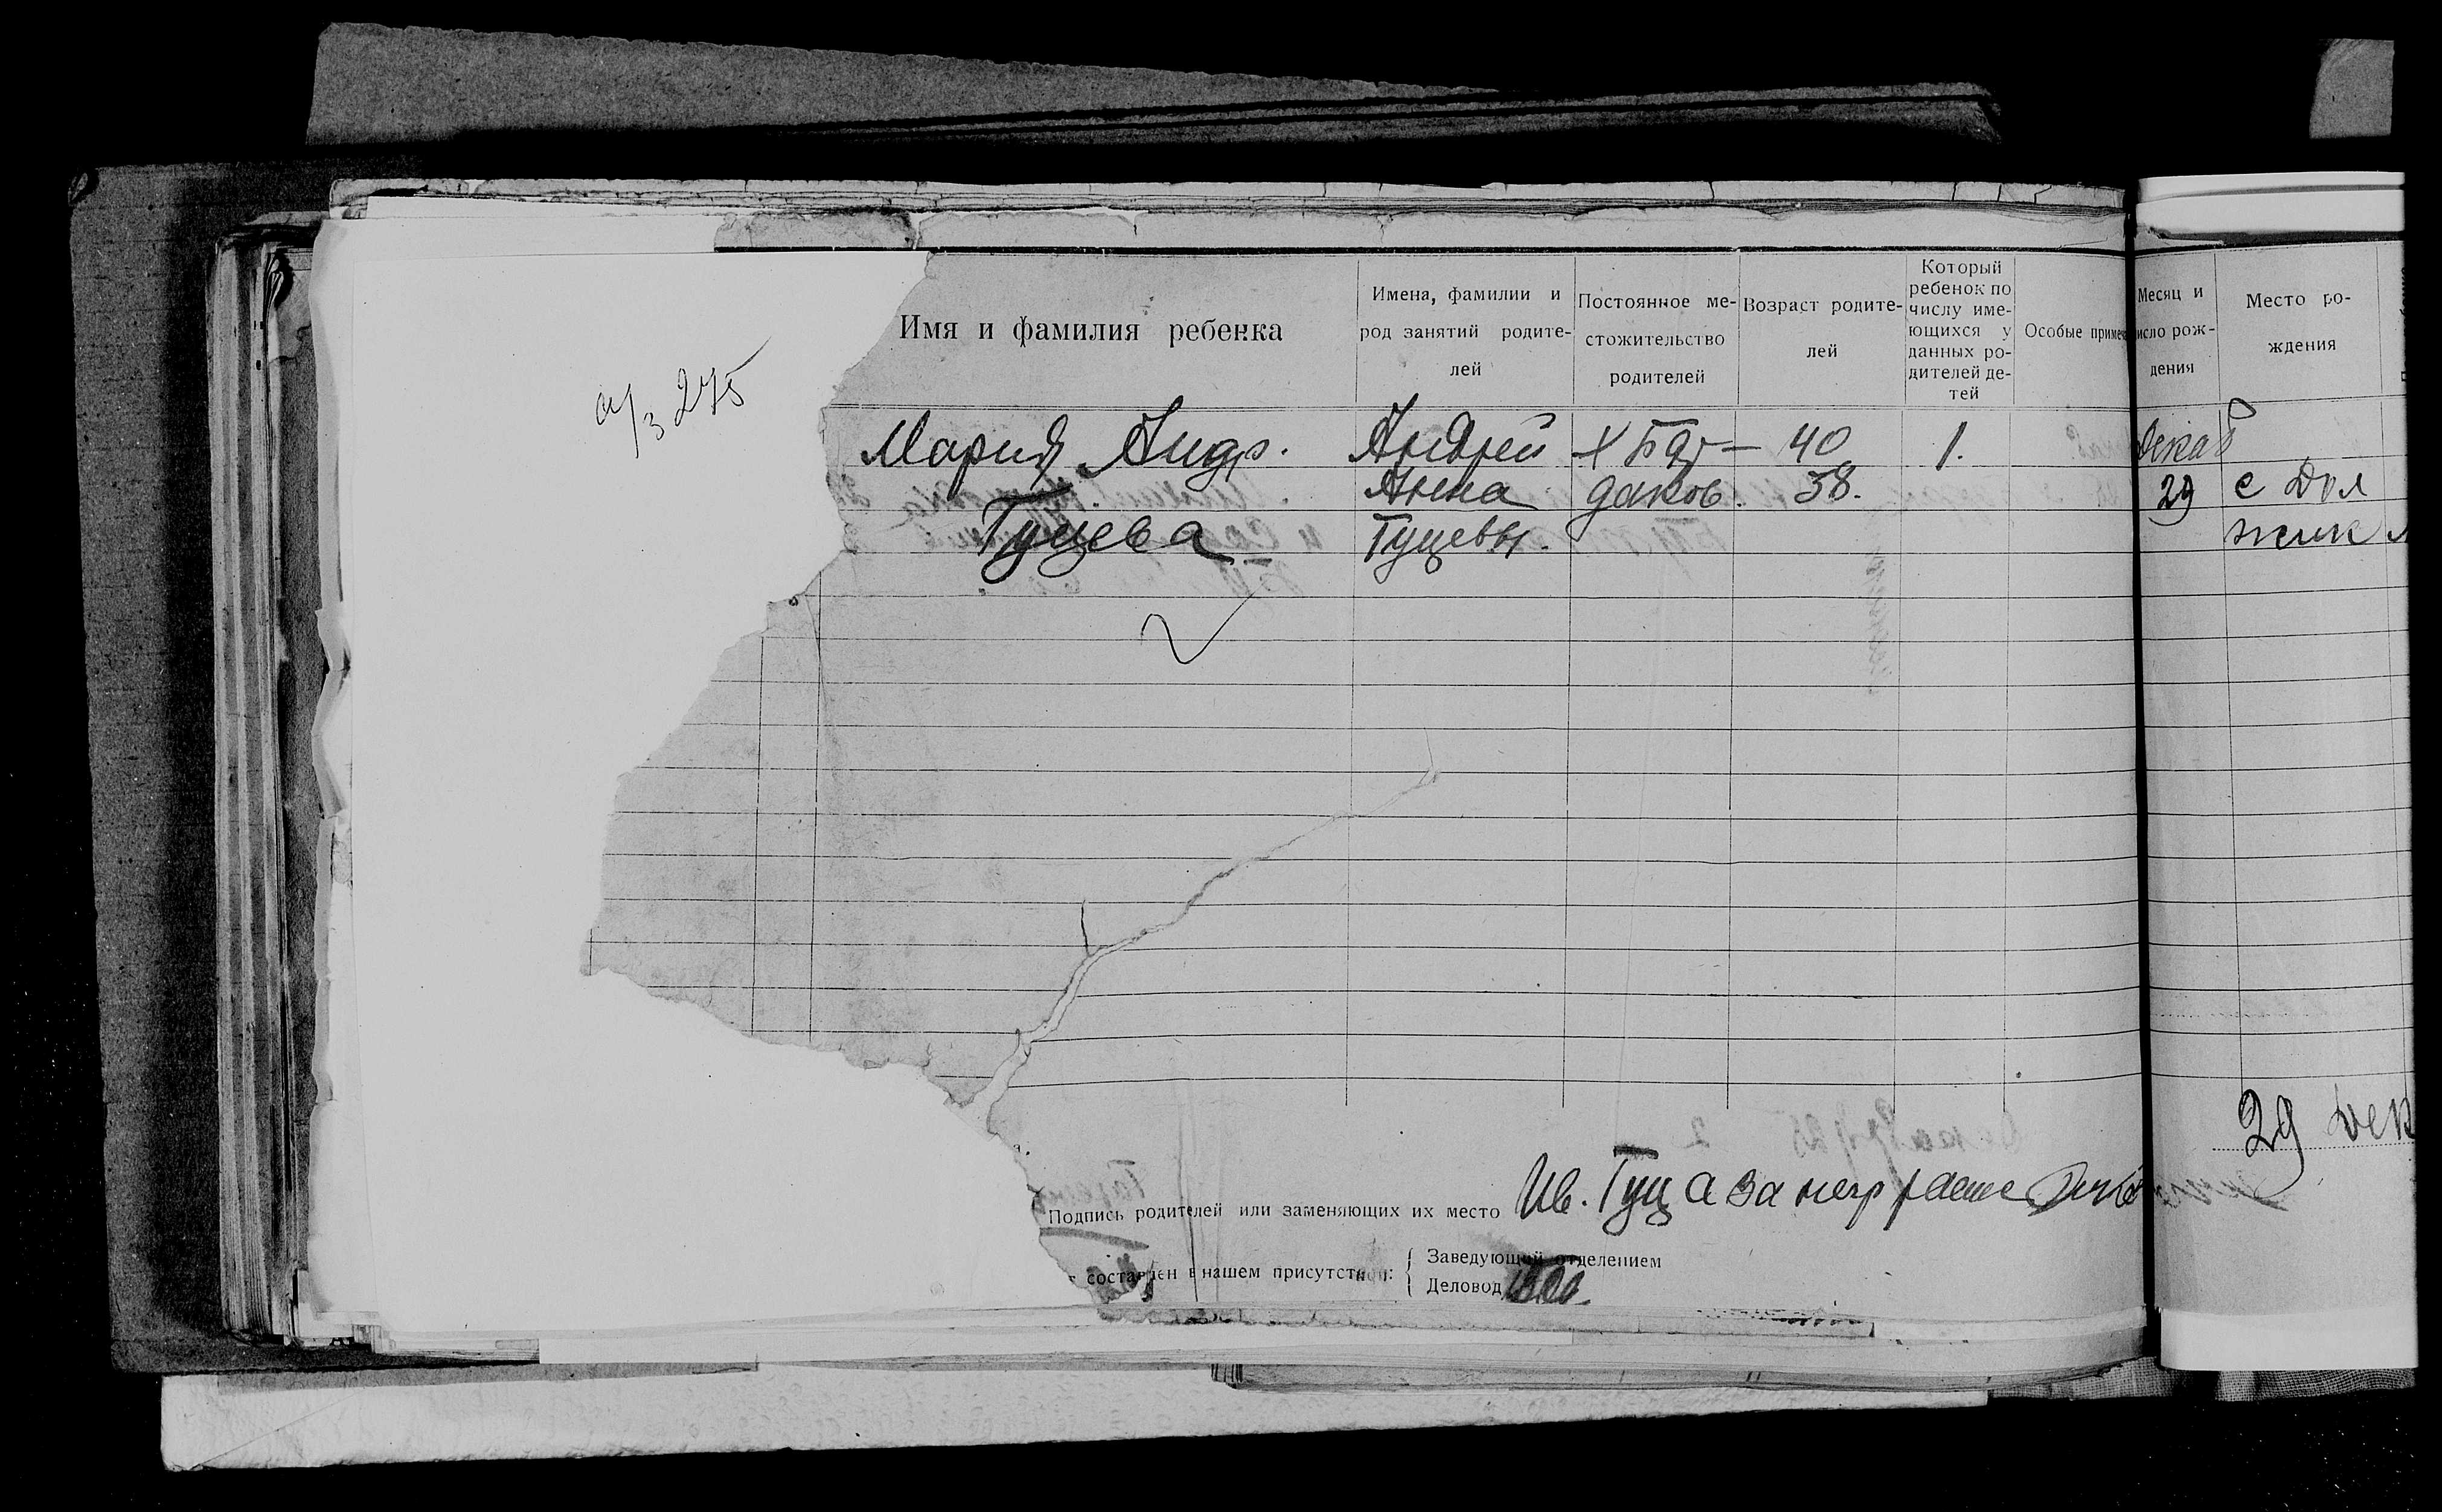 а/з 275
Имя и фамилия ребенка
Имена, фамилии и
род занятий родите-
лей
Постоянное ме-
стожительство
родителей
Возраст родите-
лей
Который
ребенок по
числу име-
ющихся у
данных ро-
дителей де-
тей
Особые примеч
Месяц и
исло рож-
дения
Место ро-
ждения
Мария Андр. Андрей х Бур- 40 1. декаб
Анна даков. 38. 29 с Дол
Гуцева Гуцевы. жик
29 дек
Подпись родителей или заменяющих их место Ив. Гуца за негр
составлен в нашем присутствии:
Заведующий отделением
Деловод